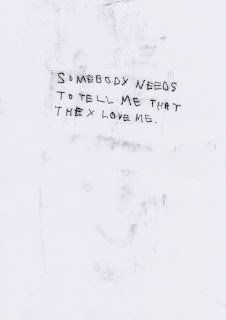 SOMEBODY NEEDS
TO TELL ME THAT
THEY LOVE ME.